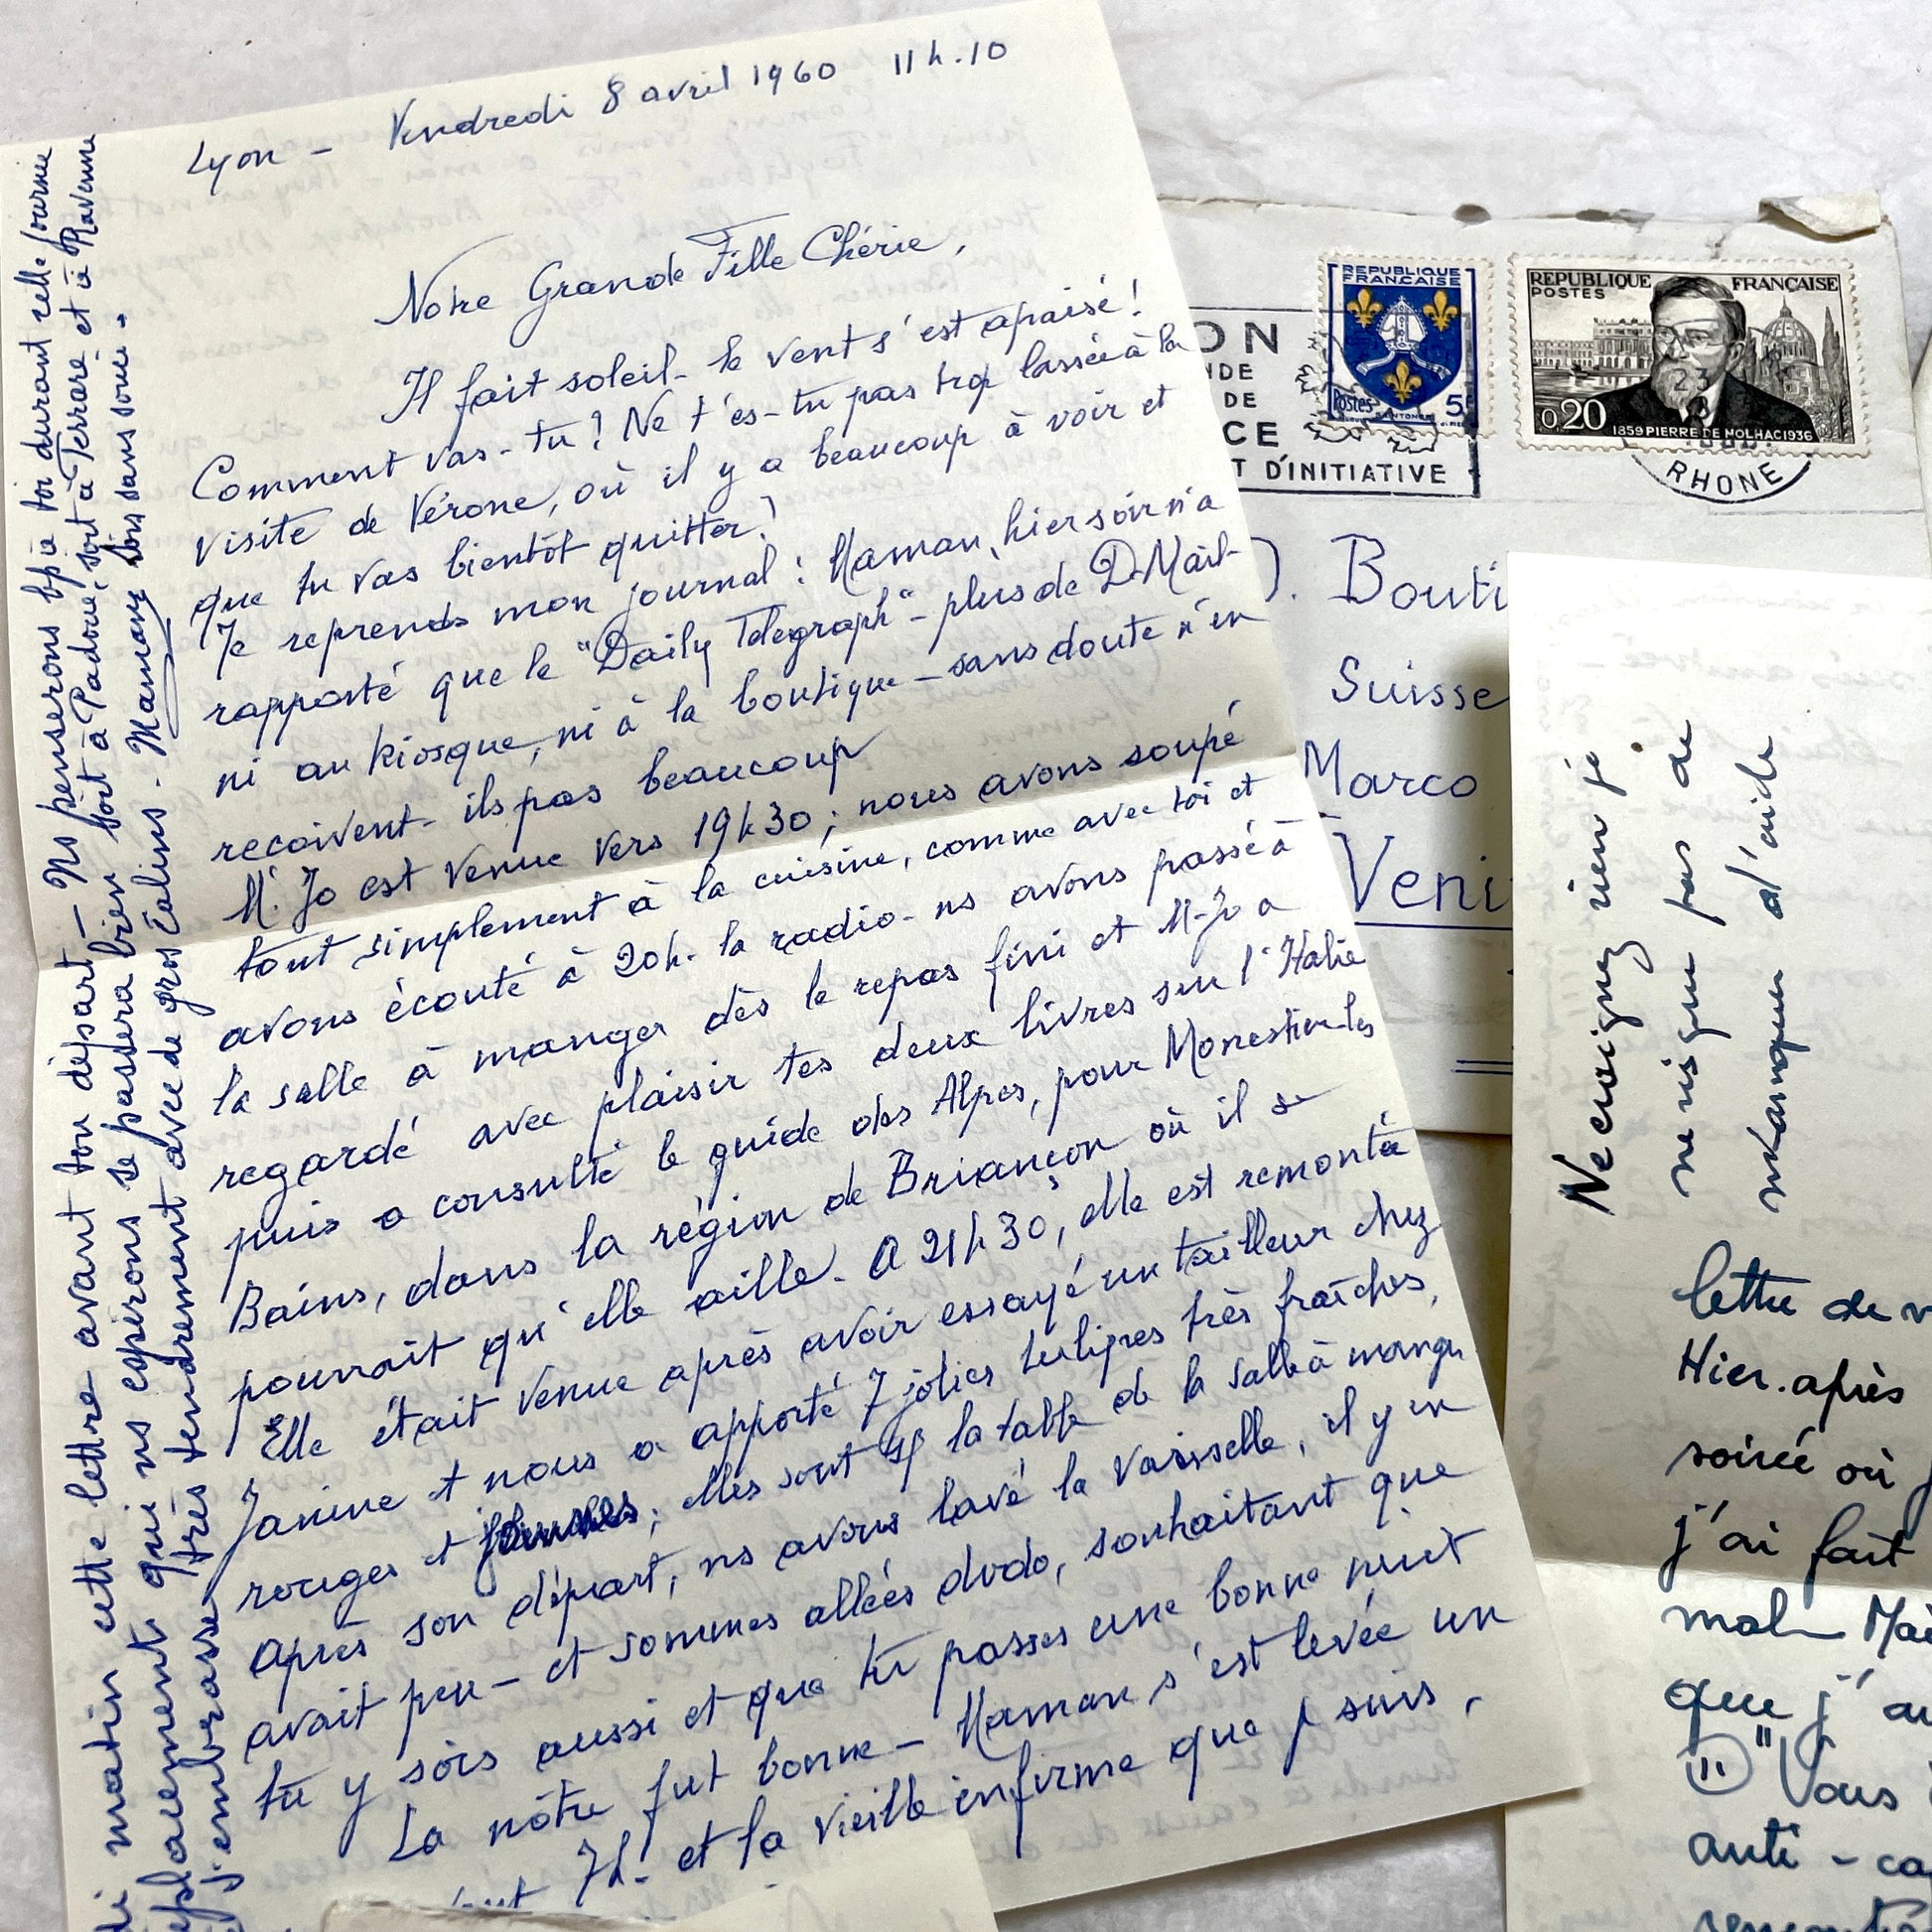 Lyon - Vendredi 8 avril 1960 11h.10
Notre Grande Fille Chérie,
Il fait soleil - le vent s'est apaisé!
Comment vas-tu? Ne t'es-tu pas trop lassée à la
visite de Vérone, où il y a beaucoup à voir et
que tu vas bientôt quitter?
Je reprends mon journal: Maman, hier soir n'a
rapporté que le "Daily Telegraph" - plus de D. Mail -
ni au kiosque, ni à la boutique - sans doute n'en
recoivent-ils pas beaucoup
M. Jo est venue vers 19h30; nous avons soupé
tout simplement à la cuisine, comme avec toi et
avons écouté à 20h. la radio - ns avons passé à
la salle à manger dès le repas fini et M-Jo a
regardé avec plaisir tes deux livres sur l'Italie
puis a consulté le guide des Alpes, pour Monestier-les
Bains, dans la région de Briançon où il se
pourrait qu'elle aille. A 21h30, elle est remontée
Elle était venue après avoir essayé un tailleur chez
Janine et nous a apporté 7 jolies tulipes très fraîches,
rouges et jaunes; elles sont sur la table de la salle à manger
après son départ, ns avons lavé la vaisselle, il y en
avait peu - et sommes allées dodo, souhaitant que
tu y sois aussi et que tu passes une bonne nuit
La nôtre fut bonne - Maman s'est levée un
7h. et la vieille infirme que je suis,
di matin cette lettre avant ton départ - Ns penserons bp à toi durant cette journée
éplacement qui ns espérons se passera bien soit à Padoue, soit à Ferrare et à Ravenne
j'embrasse très tendrement avec de gros câlins. Mamany sois sans souci -
REPUBLIQUE
FRANÇAISE
Postes
SAINTONGE
5F
REPUBLIQUE FRANÇAISE
POSTES
0,20
1859 PIERRE DE NOLHAC 1936
ON
NDE
DE
CE
T D'INITIATIVE
23
RHONE
D. Bouti
Suisse
Marco
Veni
Ne craignez rien je
ne risque pas de
manquer d'aide
lettre de v
Hier. après
soirée où j
j'ai fait
mal Mai
que j'au
" Vous
anti-ca